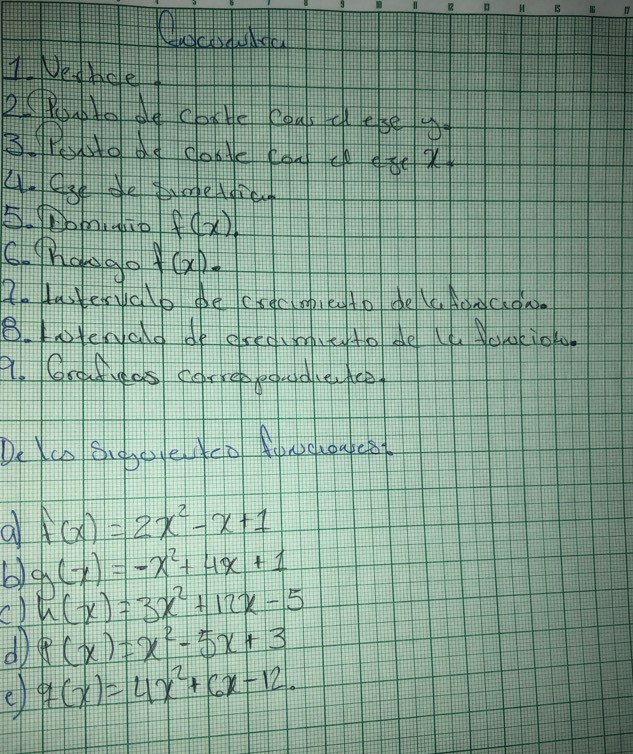 Encuentra
1. Vertice.
2. Punto de corte con el eje y.
3. Punto de corte con el eje x.
4. Eje de simetria
5. Dominio f(x).
6. Rango f(x).
7. Intervalo de crecimiento de la función.
8. Intervalo de crecimiento de la funcion.
9. Graficas correspondientes.
De las siguientes funciones:
a) f(x) = 2x² - x + 1
b) g(x) = -x² + 4x + 1
c) h(x) = 3x² + 12x - 5
d) p(x) = x² - 5x + 3
e) q(x) = 4x² + 6x - 12.